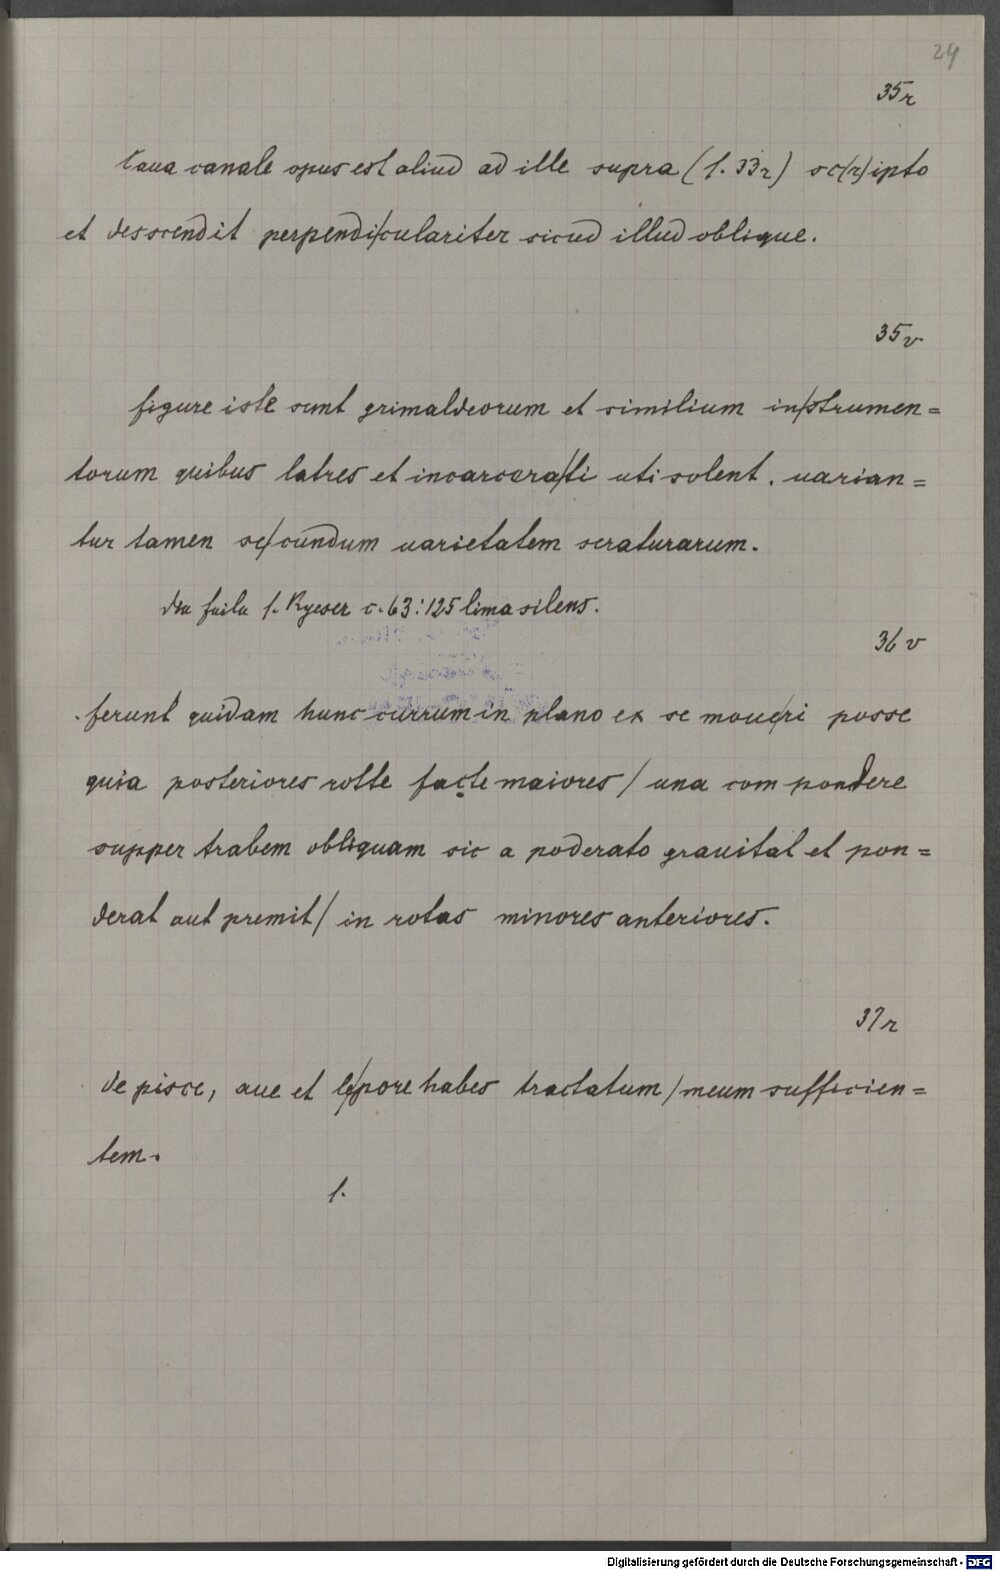 24
35r
Caua canale opus est aliud ad ille supra (f. 33r) sc(r)ipto
et desscendit perpendi/culariter sicud illud oblique.
35v
figure iste sunt grimaldeorum et similium in/strumen=
torum quibus latres et incarcera/ti uti solent. uarian=
tur tamen se/cundum uarietatem seraturarum.
f. Kyeser c. 63: 125 lima silens.
36v
ferunt quidam hunc currum in plano ex se moue/ri posse
quia posteriores rotte facte maiores / una com pondere
supper trabem obliquam sic a poderato grauitat et pon=
derat aut premit / in rotas minores anteriores.
37r
de pisce, aue et le/pore habes tractatum / meum sufficien=
tem.
f.
Digitalisierung gefördert durch die Deutsche Forschungsgemeinschaft - DFG